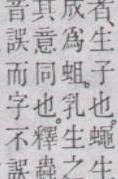 者、生子也。蠅生
成爲蛆。乳生之
其意同也。釋蟲
音誤而字不誤